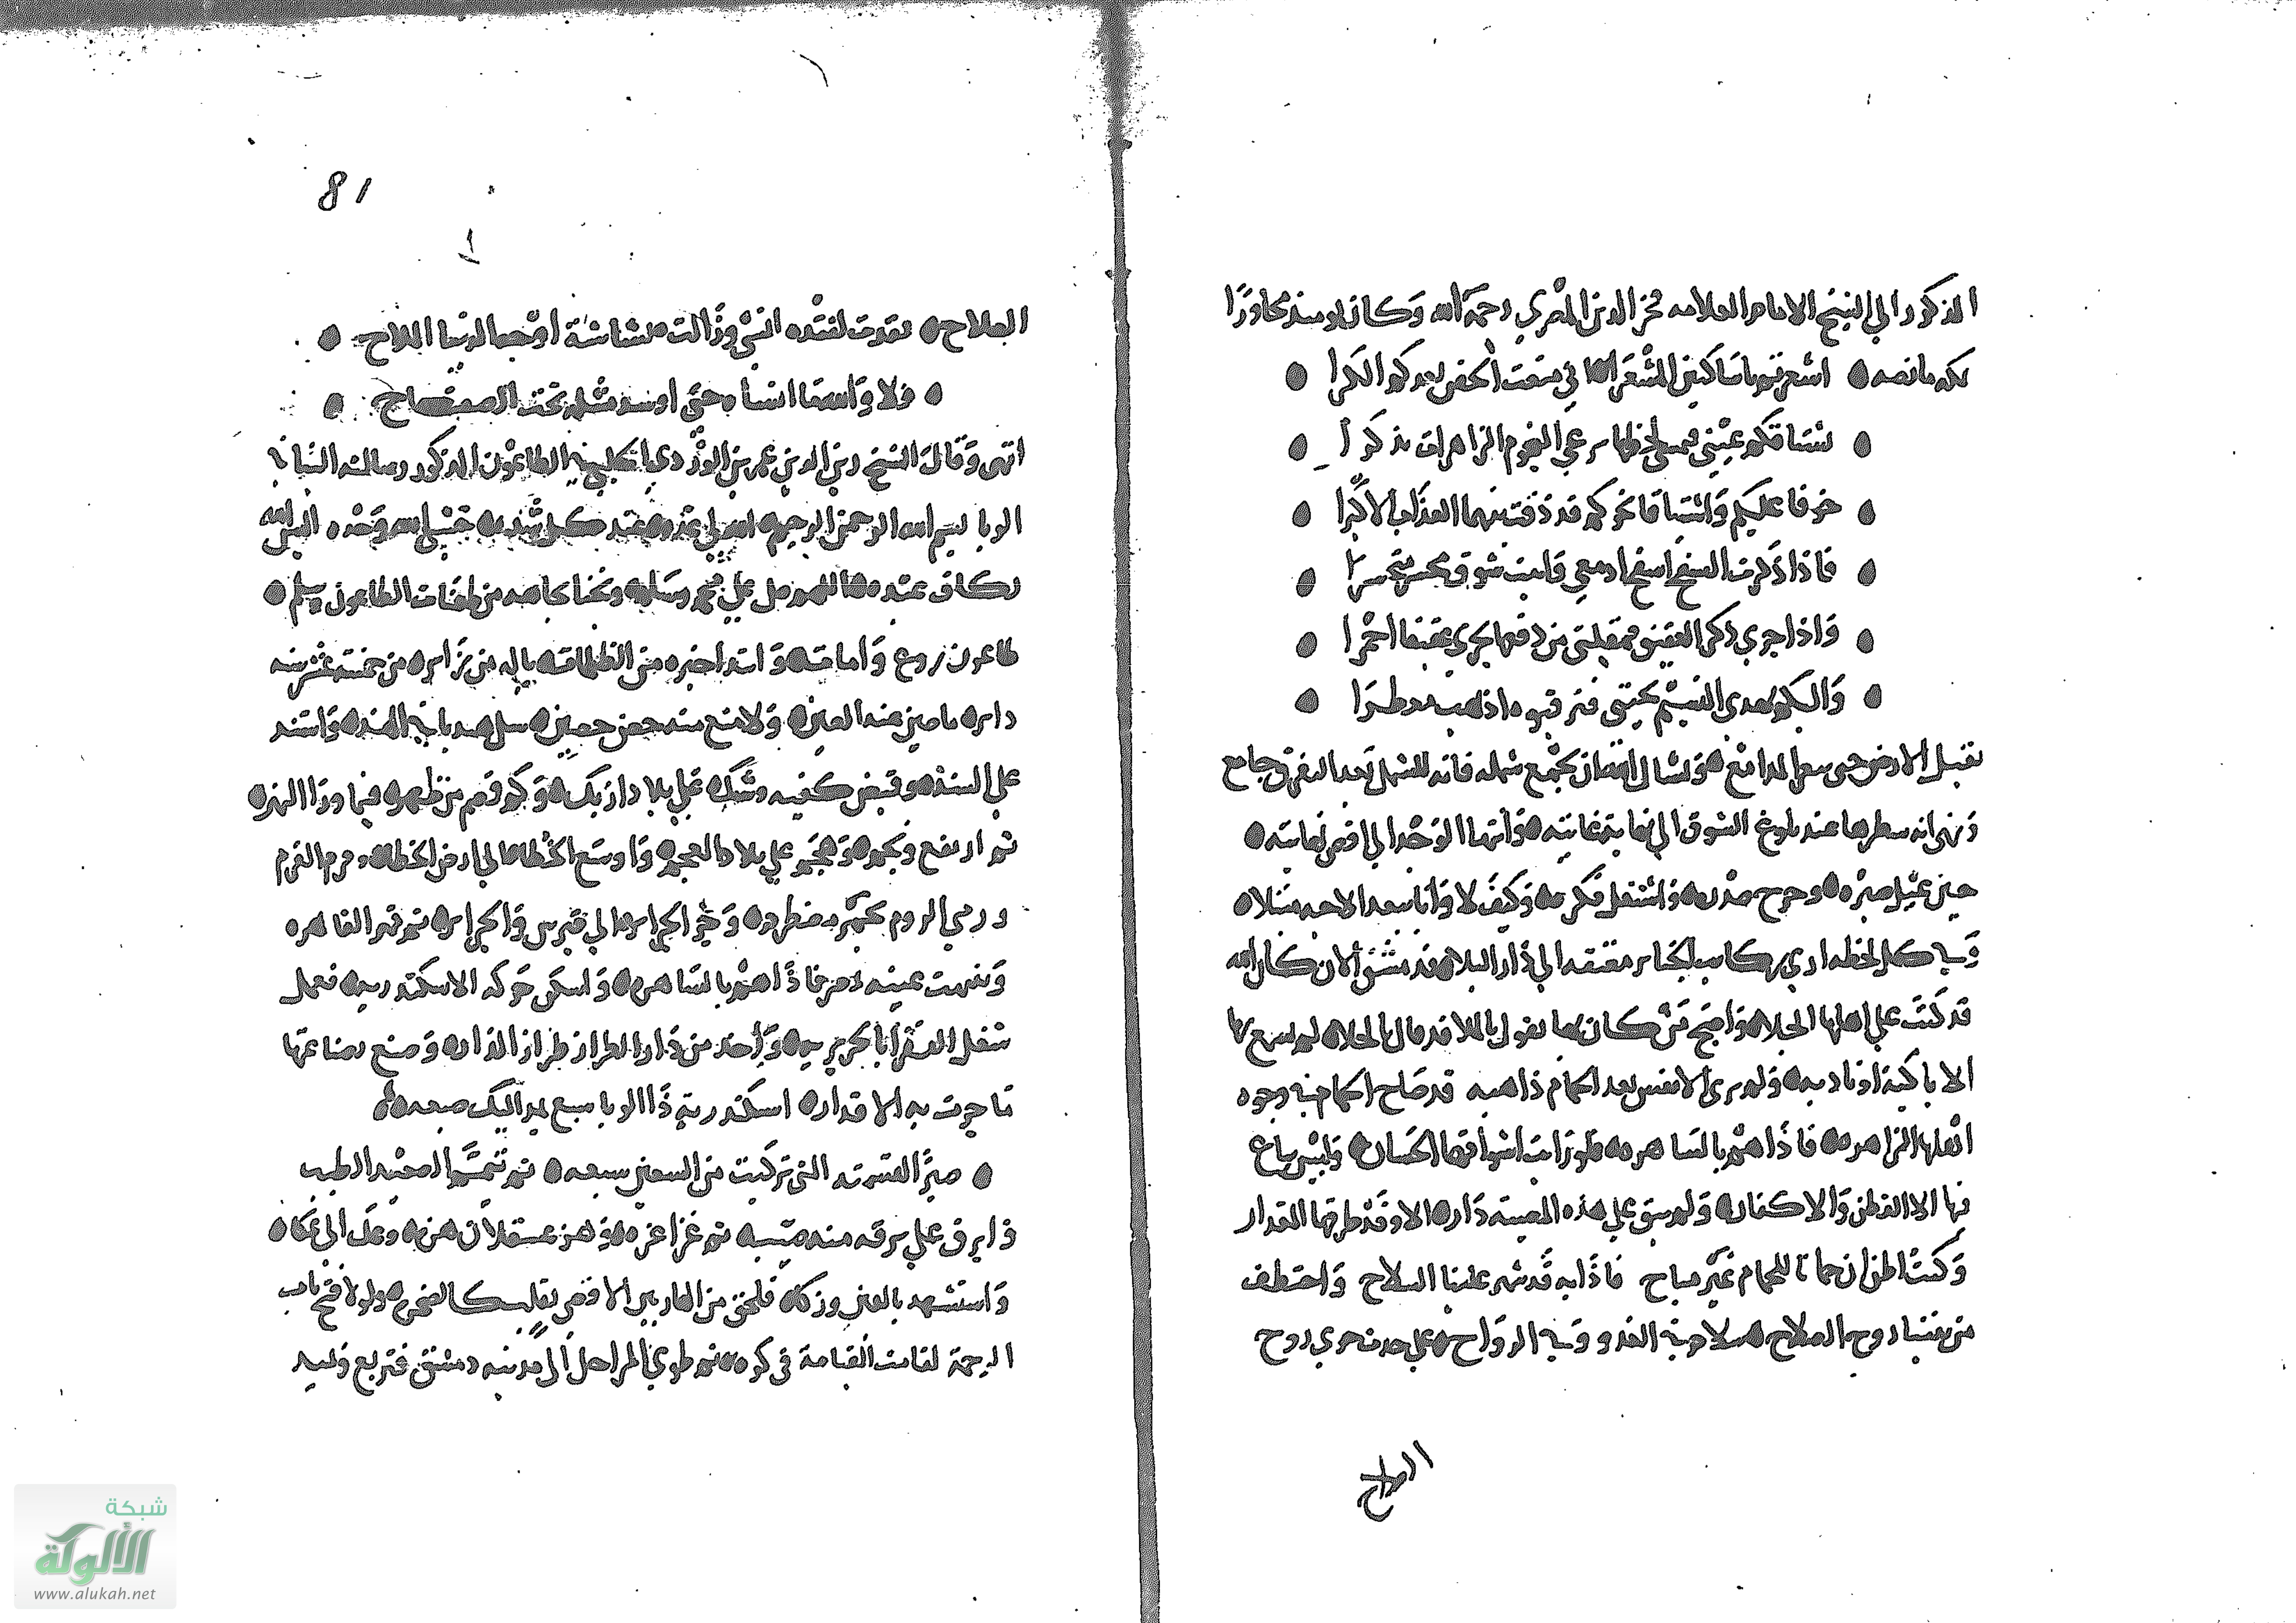 المذكور الى الشيخ الامام العلامه فخر الدين المصري رحمه الله وكان اذ ذاك مجاورا
بمكه ما نصه اشعرتم يا ساكنين المشعرا اني سمعت الخفي بعدكم الكرا
نشتاقكم عيني فمسى لحظها يرعى النجوم الزاهرات تذكرا
خوفا عليكم واشتياقا نحوكم قد ذقت بينهما العذاب الاكبرا
فاذا ذكرت السفح اسفح ادمعي وابيت شوق محسر متحسرا
واذا جرى ذكر العقيق فمقلتي من دفعها يجري عقيقا احمرا
واليكم يهدي النسيم تحيتي فترقبوه اذا هب معطرا
يقبل الارض حمى سعر المدامع ويسال الله ان يجمع شمله فانه للشمل بعد التفرق جامع
وينهي انه سطرها عند بلوغ الشوق الى نهايته غايته وانتها الوجد الى اقصى نهايته
حين عيل صبره وحرج صدره واشتغل فكره وكيف لا وانا بعد الاحبه مثلاه
وفي كل لحظه اري ركايب الجنايز معتقه الى دار البلاه فدمشق الان كان الله
قد كتب على اهلها الجلاه واضحى من كان بها يقول يا للملا قد مال الجلاه لم يسمع بها
الا باكية او ناديه ولم يرى الانفس بعد الحمام ذاهبه قد صاح الحمام في وجوه
اهلها الزاهره فاذا هم بالساهره فلو رايت اسواقها الحسان وليس يباع
فيها الا القطن والاكفان ولم يبق على هذه المصيبه داره الا وقد طرقها المقدار
وكنت اظن ان حما تا للحمام غير مباح فاذا به قد شهر علينا السلاح واختطف
من بيننا روح الصلاح سلام في الغدو وفي الرواح على جدث حوى روح
الصلاح
81
الصلاح فقدت لفقده انسي وزالت بشاشة اوجه الدنيا الملاح
فلا والله ما انساه حتى اوسد مثله تحت الصفاح
انتهى وقال الشيخ زين الدين عمر بن الوردي الحلبي في الطاعون المذكور رسالته النبا عن
الوبا بسم الله الرحمن الرحيم الله لي عده عند كل شده حسبي الله وحده اليس الله
بكاف عبده اللهم صل على محمد وسلم ونجنا بجاهه من طعنات الطاعون وسلم
طاعون روع وامات وابتدا خبره من الظلمات يا له من زاير من خمسه عشر سنه
داير ما صين عنه الصين ولا منع منه حصن حصين سل هنديا في الهند واشتد
على السند وقبض كفيه وشبك على بلاد ازبك وكم قصم من ظهر فيما ورا النهر
ثم ارتفع ونجم وهجم على بلاد العجم واوسع الخطا الى ارض الخطا وقرم القرم
ورمى الروم بجمر مضطرم وجر الجراير الى قبرس والجزاير ثم قهر القاهره
وتنبهت عينه لمصر فاذا هم بالساهره واسكن حركه الاسكندريه فعمل
شغل الفقرا بالحريريه واخذ من دار الطراز طراز الداره وصنع بصناعها
ما جرت به الاقدار اسكندرية ذا الوبا سبع يمد اليك ضبعه
صبرا لقسمته التي تركت من السبعين سبعه ثم تيمم الصعيد الطيب
وابرق على برقه منه صيب ثم غزا غزه وهز عسقلان هزه وعك الى عكاه
واستشهد بالقدس وزكى فلحق من الهاربين الاقصى بقلب كالصخره ولولا فتح باب
الرحمة لقامت القيامة في كره ثم طوى المراحل الى مدينه دمشق فتربع وتميد
شبكة
الألوكة
www.alukah.net